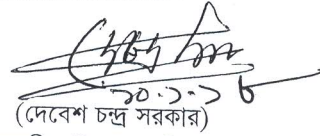 ১০.১.১৮
(দেবেশ চন্দ্র সরকার)